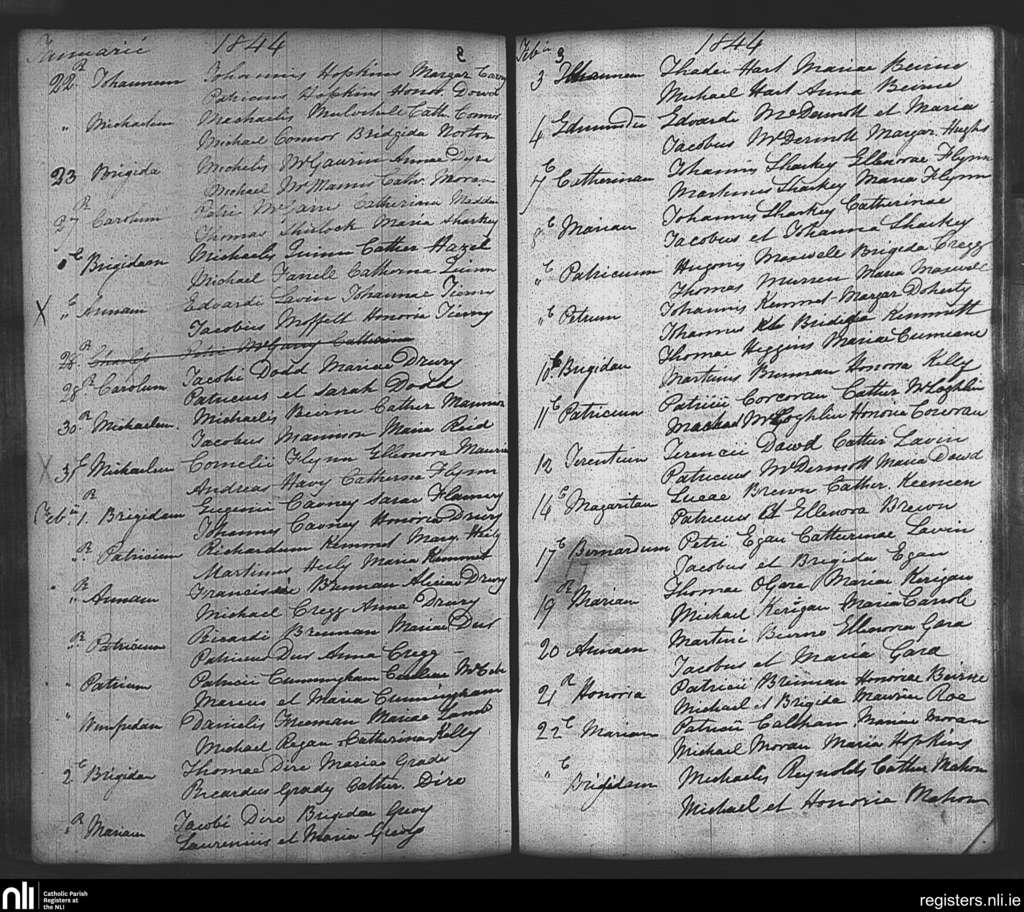 Januarii 1844 2
22 R Johannem Johannis Hopkins Margar Carny
Patricius Hopkins Honor Dowd
" Michaelem Michaelis Mulvihile Cath. Connor
Michael Connor Bridgida Norton
23 Brigida Michelis McGaurin Annae Dire
Michael McManus Cath. Moran
27 R Carolum Petri McGarry Catherina Madden
Thomas Shirlock Maria Sharkey
" C Brigidam Michaelis Quinn Cather Hazel
Michael Farrell Catherina Quinn
X " C Annam Edvardi Lavin Johannae Tierny
Jacobus Moffett Honoria Tierny
28 R Charles Petri McGarry Catherina
28 R Carolum Jacobi Dodd Mariae Drury
Patricius et Sarah Dodd
30 R Michaelem Michaelis Beirne Cather Mannion
Jacobus Mannion Maria Reid
X 31 C Mikaelem Cornelii Flynn Ellenora
Andreas Havy Catherina Flynn
Feb. 1. R Brigidam Eugenii Cawney Sarae Flannery
Johannes Cawney Honoria Drury
" R Patricium Richardum Kemmet Mary Hily
Martinus Hily Maria Kemmet
" R Annam Brennan Aliciae Drury
Michael Cregg Anna Drury
" R Patricium Ricardi Brennan Mariae Dus
Patricius Dus Anna Cregg
" Patricium Patricii Cunningham
Marcus et Maria Cunningham
" Danielis Freeman Mariae Lamb
Michael Regan Catherina Kelly
2 C Brigidam Thomae Dire Mariae Grady
Ricardus Grady Cather. Dire
" R Mariam Jacobi Dire Brigidae
Laurentius et Maria
Feb. 3 1844
3 Johannem Thadei Hart Mariae Beirne
Michael Hart Anna Beirne
4 Edmundu Edvardi McDermott et Maria
Jacobus McDermott Margar. Hughs
7 C Catherinam Johannis Sharkey Ellenorae Flynn
Martinus Sharkey Maria Flynn
8 C Mariam Johannis Sharkey Catherinae
Jacobus et Johanna Sharkey
" C Patricium Hugonis Maxwell Brigida Cregg
Thomas Murren Maria Maxwell
" C Petrum Johannis Kemmet Margar Doherty
Johannes Bridgida Kemmett
10 C Brigidam Thomae Higgins Mariae Cumiane
Martinus Brennan Honora Kelly
11 C Patricium Patricii Corcoran Cather McLoghlin
Michael McLoghlin Honoria Corcoran
12 Terentium Terencii Dowd Cather Lavin
Patricius McDermott Maria Dowd
14 C Magaritam Lucae Brewn Cather. Keenen
Patricius et Ellenora Brewn
17 C Bernardum Petri Egan Catherinae Lavin
Jacobus et Brigida Egan
19 R Mariam Thomae OGara Mariae Kerigan
Michael Kerigan Maria Carrole
20 Annam Martini Beirne Ellenora Gara
Jacobus et Maria Gara
21 R Honoria Patricii Brennan Honorae Beirne
Michael et Brigida
22 C Mariam Patricii Calthan Mariae Moran
Michael Moran Maria Hopkins
" C Brigidam Michaelis Reynolds Cather Mahon
Michael et Honoria Mahon
nli Catholic Parish
Registers at
the NLI
registers.nli.ie